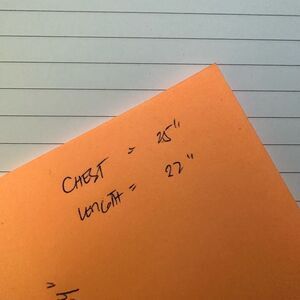 CHEST = 25"
LENGTH = 22"